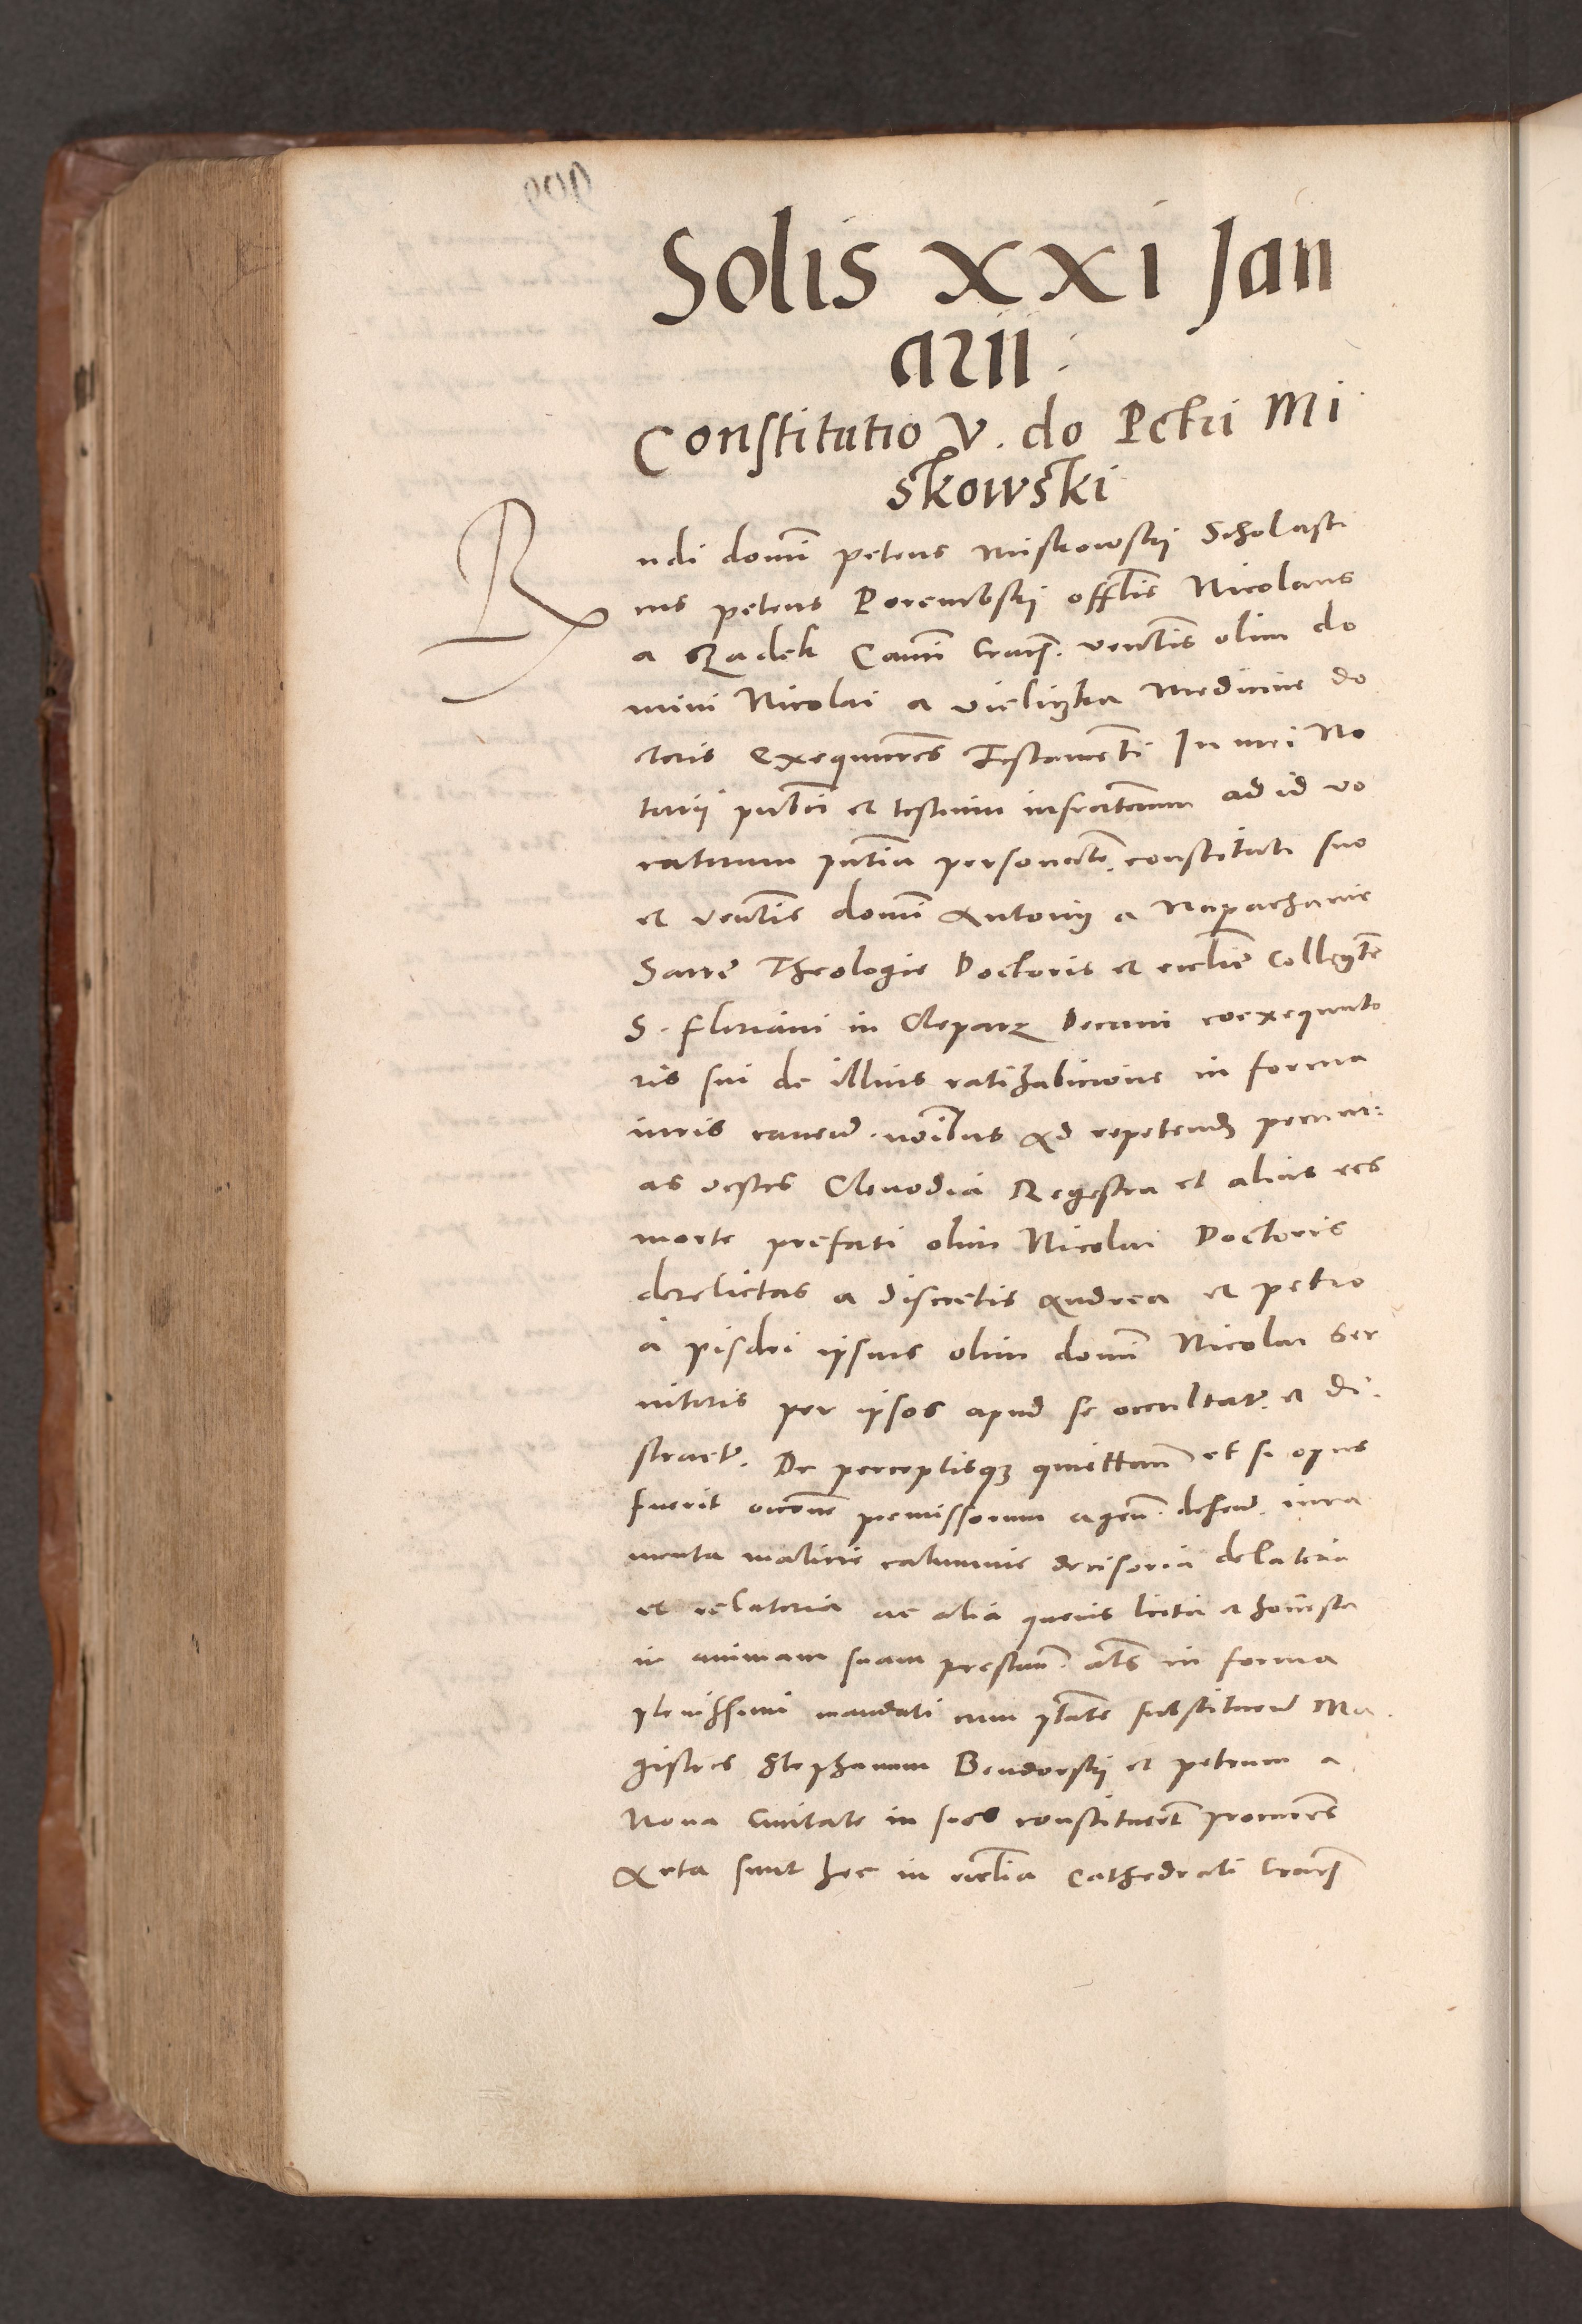 Solis xxi Jan
arii
Constitutio V. do Petri Mi
skowski
Rndi domi petrus Miskowskij Scholasti
cus petrus Porembskij offlis Nicolaus
a Szadek Canci Crac. ventlis olim do
mini Nicolai a vielizka Medicine do
ctoris Exequutores Testamenti In mei No
tarij publici et testium infrascriptorum ad id vo
catorum pntia personalr. constituti suo
et ventlis domi Antonij a Napachanie
Sacre Theologie Doctoris et ecclie Collegte
S. floriani in Cleparz Decani coexequuto
ris sui de illius ratihabicione in forma
iuris caven. noibus Ad repetend pecuni:
as vestes Clenodia Regestra et alias res
morte prefati olim Nicolai Doctoris
derelictas a discretis Andrea et petro
a pisdri ipsius olim domi Nicolai ser
vitoris per ipsos apud se occultat. et di.
stract. De perceptisq3 quiettan et si opus
fuerit occone premissorum agen. defen. iura
menta malicie calumnie decisoria delatoria
et relatoria ac alia quevis licita et honesta
in animam suam prestan. als in forma
plenissimi mandati cum ptate substituen Ma
gistros Stephanum Bendorskij et petrum a
Nova Civitate in suos constituerut procures
Acta sunt hec in ecclia Cathedrali Crac